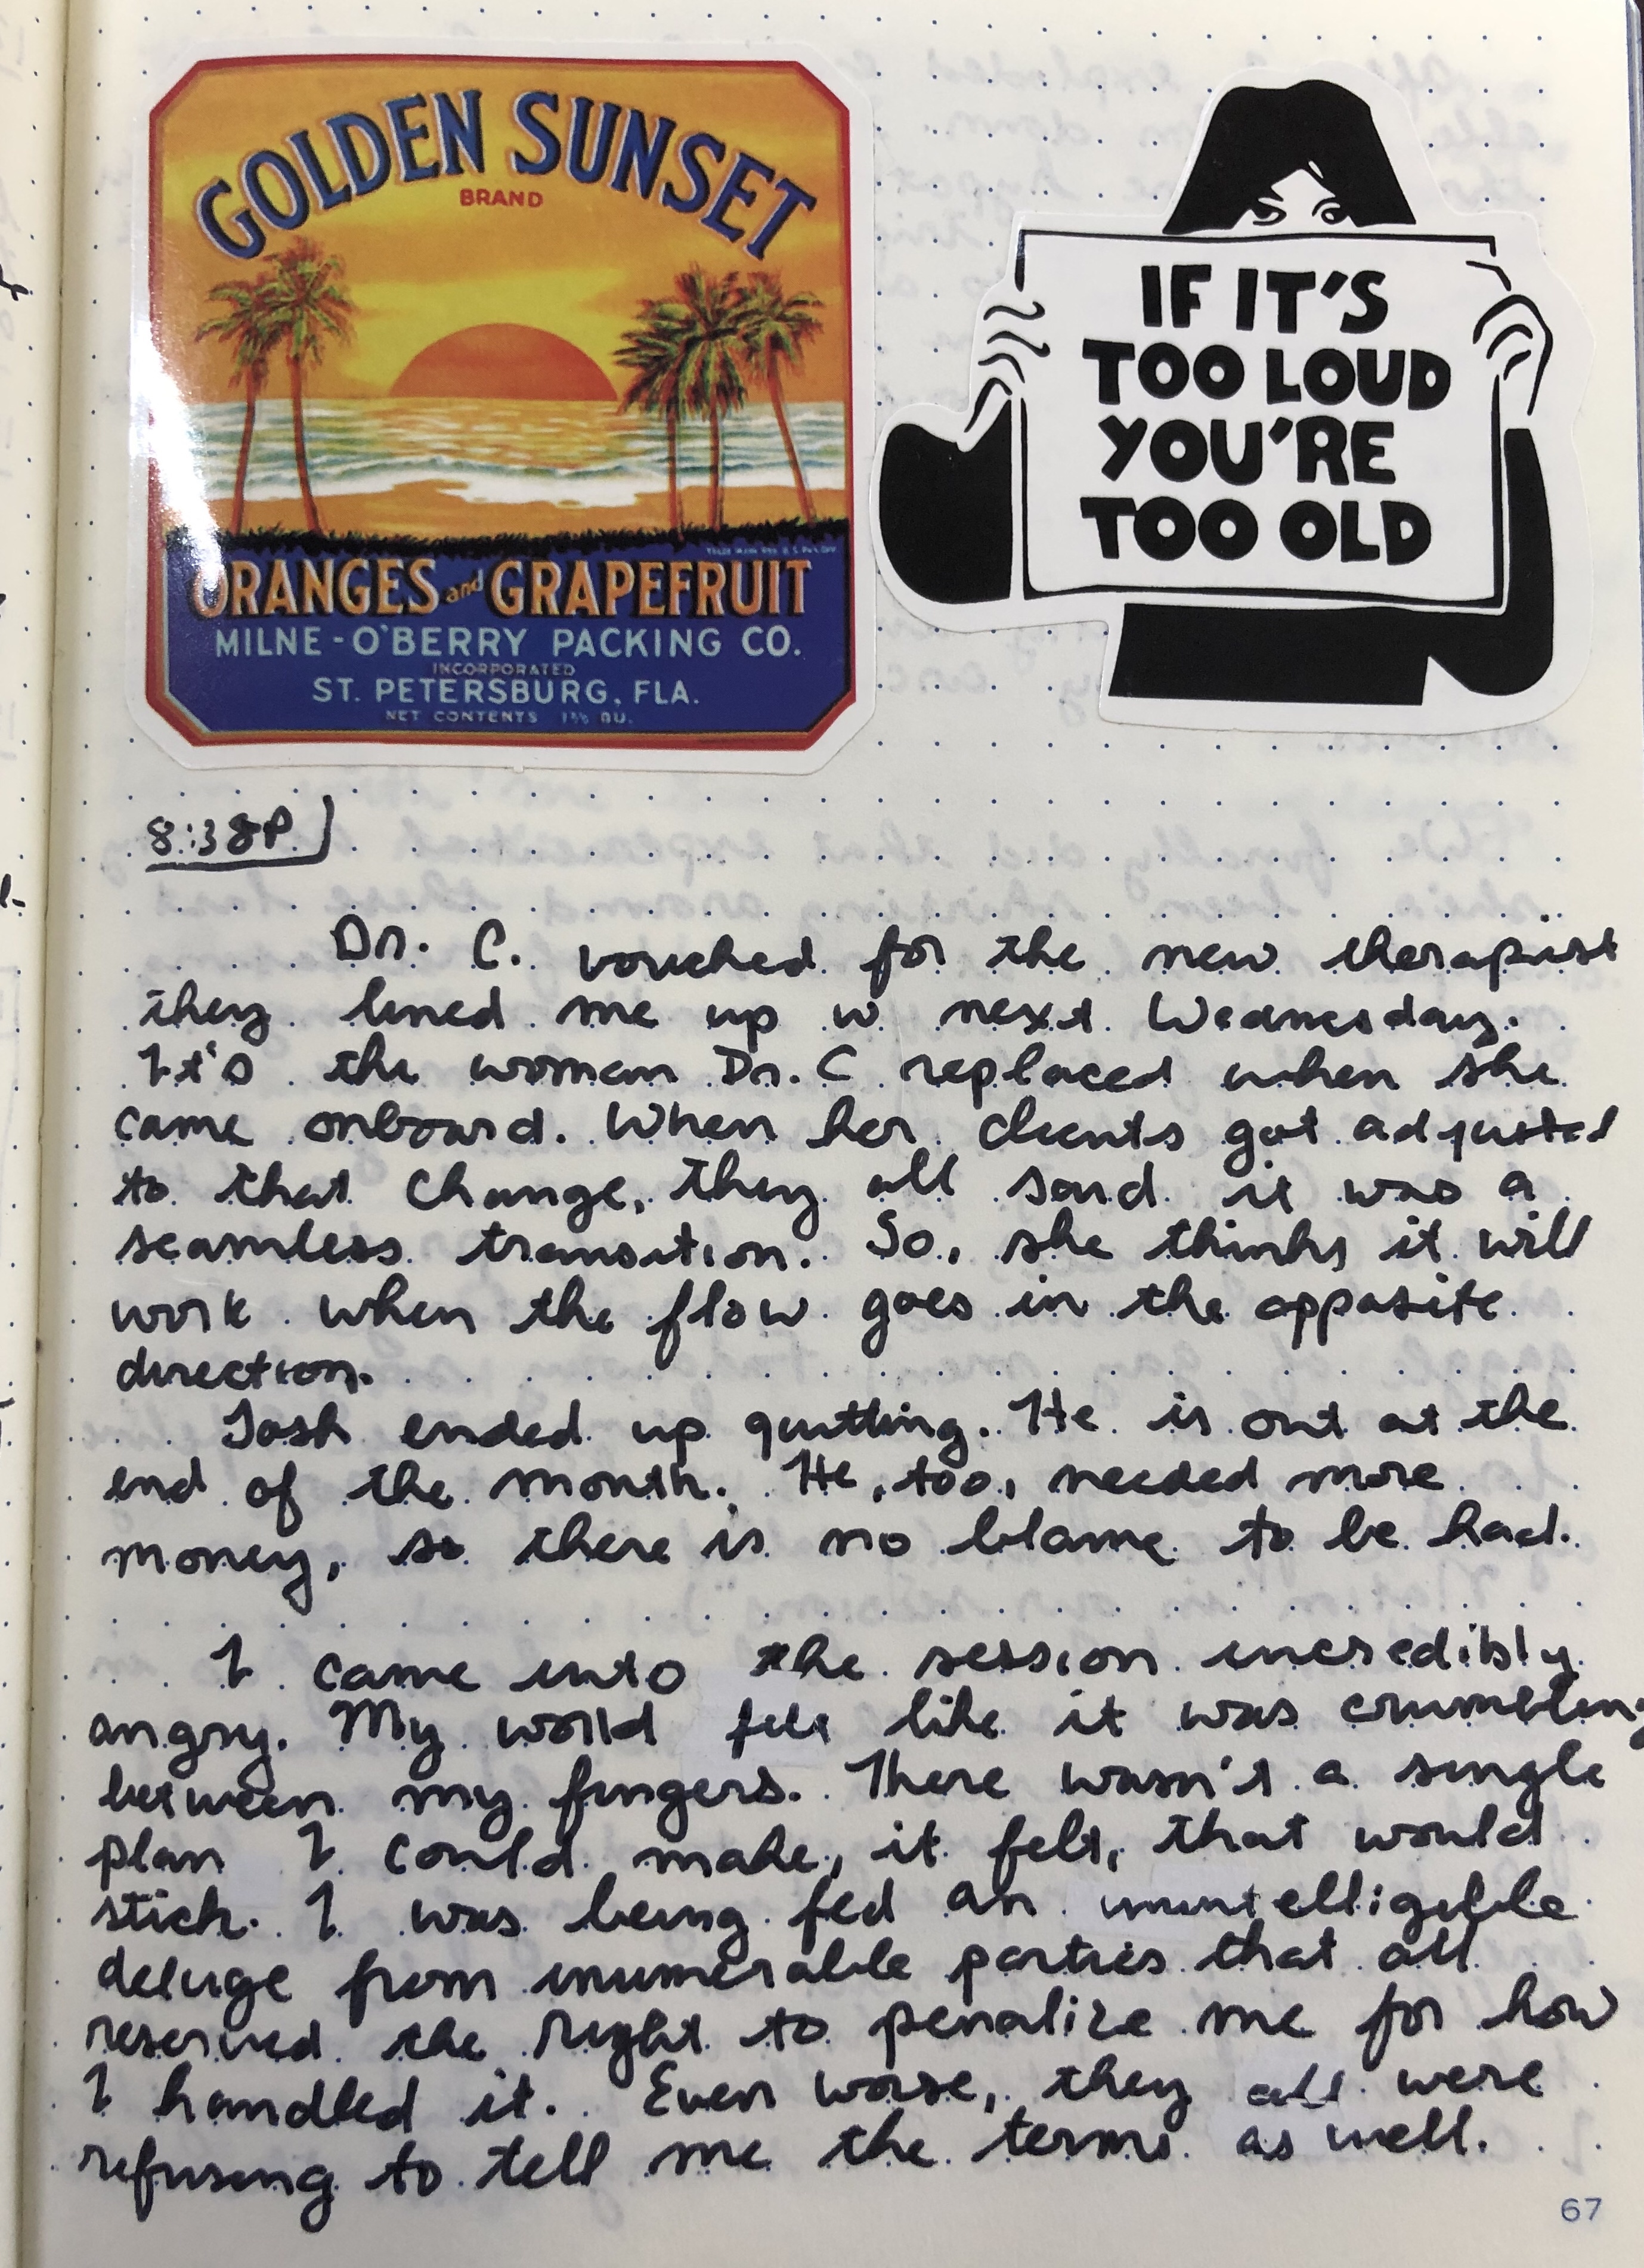 GOLDEN SUNSET
BRAND
TRADE MARK REG. U.S. PAT. OFF.
ORANGES and GRAPEFRUIT
MILNE-O'BERRY PACKING CO.
INCORPORATED
ST. PETERSBURG, FLA.
NET CONTENTS 1⅗ BU.
IF IT'S
TOO LOUD
YOU'RE
TOO OLD
8:38P
Dr. C. vouched for the new therapist
they lined me up w next Wednesday.
It's the woman Dr. C replaced when she
came onboard. When her clients got adjusted
to that change, they all said it was a
seamless transition. So, she thinks it will
work when the flow goes in the opposite
direction.
Josh ended up quitting. He is out at the
end of the month. He, too, needed more
money, so there is no blame to be had.
I came into the session incredibly
angry. My world felt like it was crumbling
between my fingers. There wasn't a single
plan I could make, it felt, that would
stick. I was being fed an unintelligible
deluge from inumerable parties that all
reserved the right to penalize me for how
I handled it. Even worse, they all were
refusing to tell me the terms as well.
67